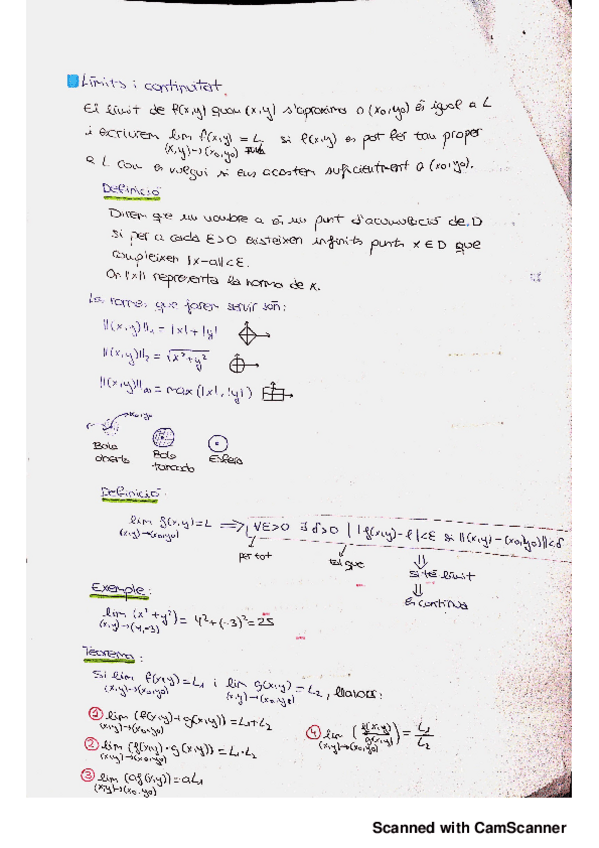 Límits i continuïtat.
El límit de f(x,y) quan (x,y) s'aproxima a (x₀,y₀) és igual a L
i escriurem lim f(x,y) = L si f(x,y) es pot fer tan proper
(x,y)→(x₀,y₀)
a L com es vulgui si ens acostem suficientment a (x₀,y₀).
Definició
Direm que un nombre a és un punt d'acumulació de D
si per a cada ε>0 existeixen infinits punts x ∈ D que
compleixen ‖x-a‖<ε.
On ‖x‖ representa la norma de x.
Les normes que farem servir són:
‖(x,y)‖₁ = |x|+|y|
‖(x,y)‖₂ = √x²+y²
‖(x,y)‖∞ = max(|x|,|y|)
r x₀,y₀
Bola oberta
Bola tancada
Esfera
Definició
lim f(x,y)=L ⟹ ∀ε>0 ∃ δ>0 | |f(x,y)-l|<ε si ‖(x,y)-(x₀,y₀)‖<δ
(x,y)→(x₀,y₀)
per tot
tal que
si té límit
és contínua
Exemple:
lim (x²+y²) = 4²+(-3)²=25
(x,y)→(4,-3)
Teorema:
Si lim f(x,y)=L₁ i lim g(x,y)=L₂, llavors:
(x,y)→(x₀,y₀) (x,y)→(x₀,y₀)
① lim (f(x,y)+g(x,y))=L₁+L₂
(x,y)→(x₀,y₀)
② lim (f(x,y)·g(x,y))=L₁·L₂
(x,y)→(x₀,y₀)
③ lim (af(x,y))=aL₁
(x,y)→(x₀,y₀)
④ lim (f(x,y)/g(x,y)) = L₁/L₂
(x,y)→(x₀,y₀)
Scanned with CamScanner